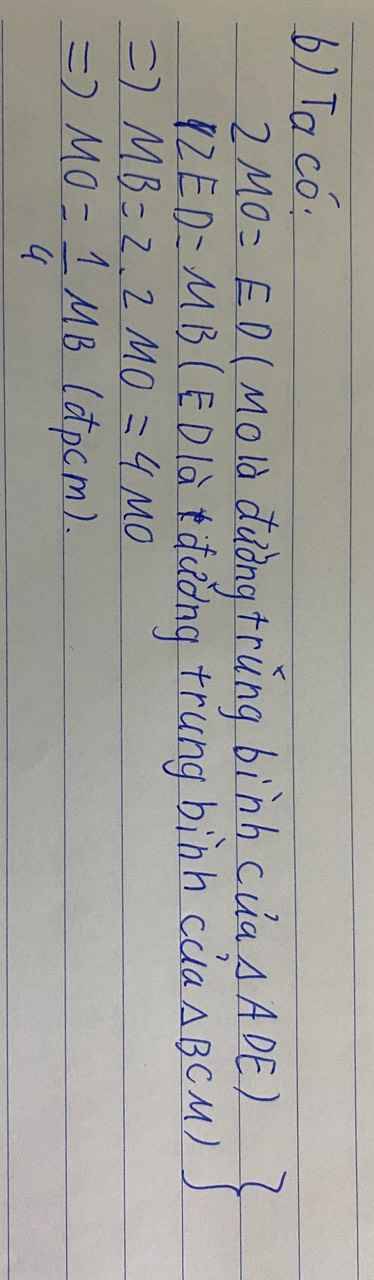 b) Ta có:
2 MO = ED (MO là đường trung bình của Δ ADE) }
2 ED = MB (ED là đường trung bình của Δ BCM) }
=) MB = 2.2 MO = 4 MO
=) MO = 1/4 MB (đpcm).